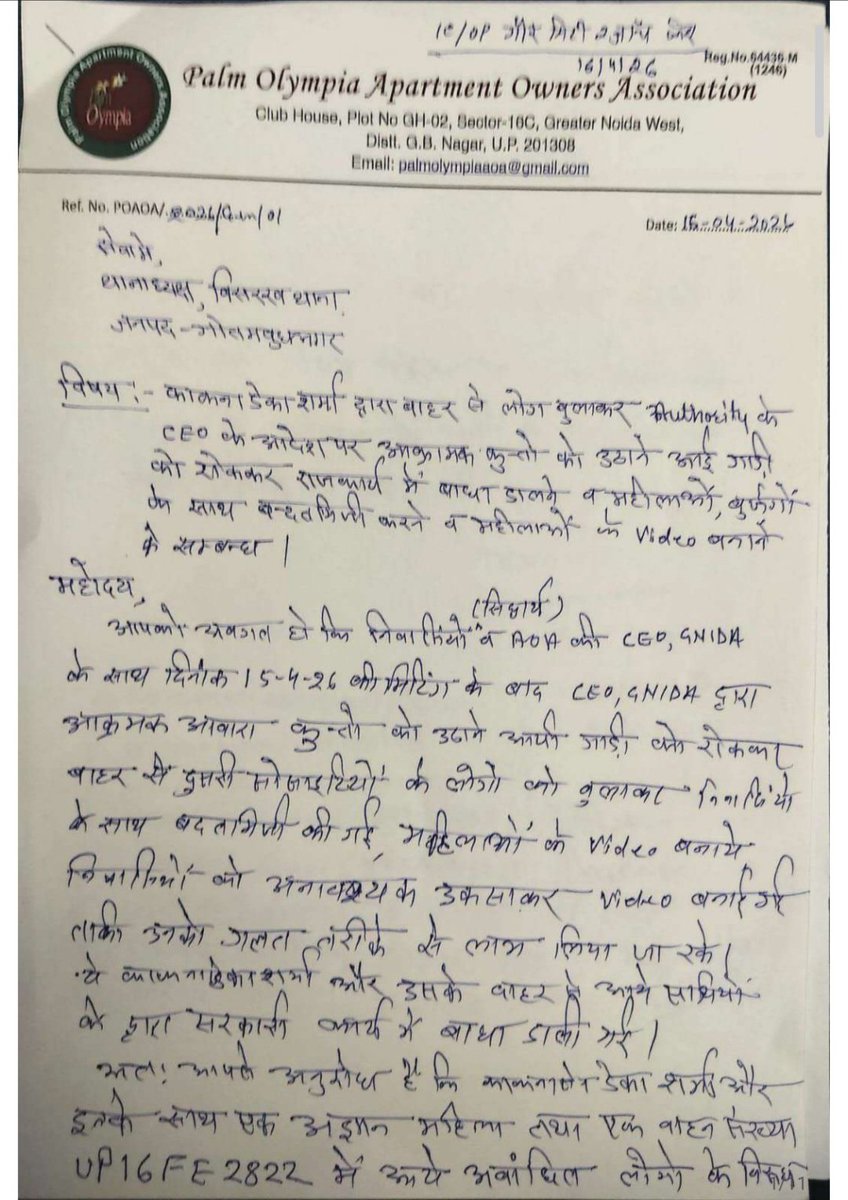 IC/OP गौर सिटी
16/4/26
Reg.No.64436-M
(1246)
Palm Olympia Apartment Owners Association
Palm Olympia Apartment Owners Association
Olympia
Club House, Plot No GH-02, Sector-16C, Greater Noida West,
Distt. G.B. Nagar, U.P. 201308
Email: palmolympiaaoa@gmail.com
Ref. No. POAOA/.2026/Gen/01
Date: 16-04-2026
सेवामे,
थानाध्यक्ष, बिसरख थाना
जनपद - गौतमबुधनगर
विषय :- डेका शर्मा द्वारा बाहर से लोग बुलाकर Authority के
CEO के आदेश पर आक्रामक कुत्तो को उठाने आई गाड़ी
को रोककर राजकार्य में बाधा डालने व महीलाओं, बुर्जगों
के साथ करने व महीलाओं के Video बनाने
के सम्बन्ध |
महोदय,
(सिद्धार्थ)
आपको अवगत हो कि निवासियों व AOA की CEO, GNIDA
के साथ दिनांक 15-4-26 की मिटिंग के बाद CEO, GNIDA द्वारा
आक्रमक आवारा कुत्तो को उठाने आयी गाड़ी को रोककर
बाहर से दुसरी सोसाइटियों के लोगो को बुलाकर निवासियो
के साथ बदतमिजी की गई, महिलाओं के Video बनाये
निवासियों को अनावश्यक उकसाकर Video बनाई गई
ताकी उनको गलत तरीके से लाभ लिया जा सके |
ये डेका शर्मा और उसके बाहर से आये साथियों
के द्वारा सरकारी कार्य में बाधा डाली गई |
अतः आपसे अनुरोध है कि डेका शर्मा और
इनके साथ एक अज्ञान महिला तथा एक वाहन संख्या
UP16FE2822 में आये अवांछित लोगो के विरूध